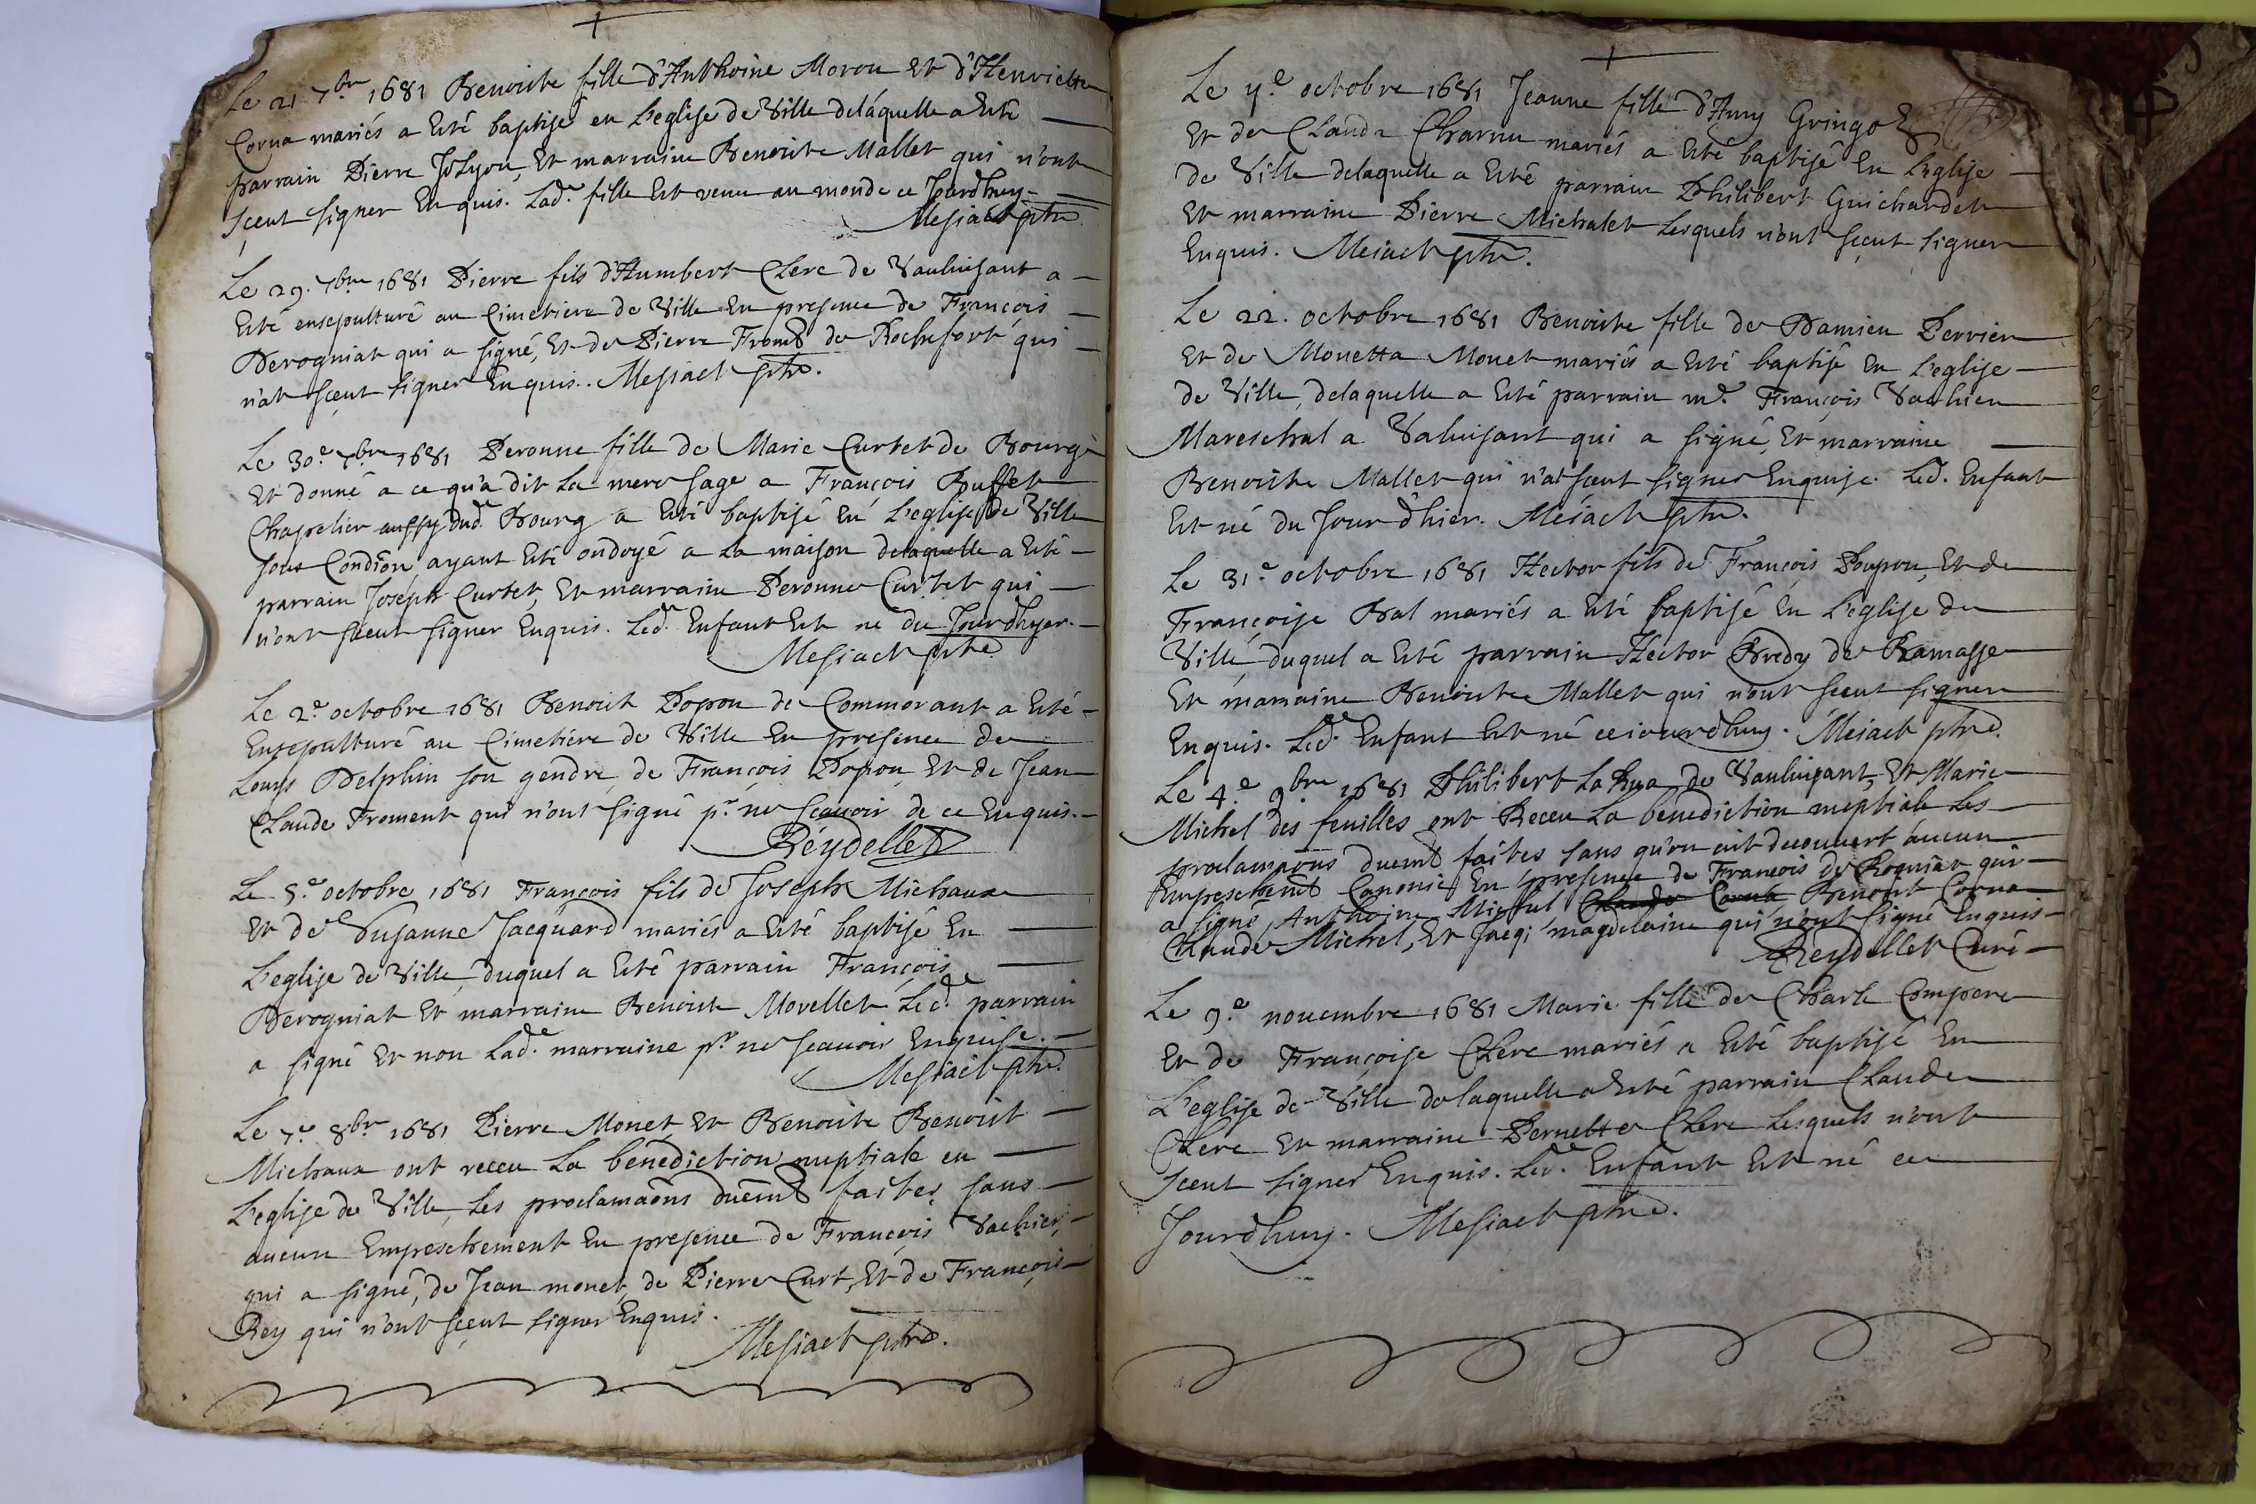 Le 21 7br 1681 Benoiste fille d'Anthoine Moron et d'Henriette
Corna mariés a esté baptisé en L'eglise de Ville delaquelle a esté
parrain Pierre JoLyon, Et marraine Benoiste Mallet qui n'ont
sceut signer Enquis. Lad.e fille est venue au monde ce Jourdhuy.
Mesiact ptre
Le 29. 7bre 1681 Pierre fils d'Humbert Clerc de Vauluisant a
Esté ensepulturé au Cimetiere de Ville En presence de François
Derogniat qui a signé, Et de Pierre Fromt de Rochefort qui
n'at sceut signer Enquis. Mesiact ptre.
Le 30.e 7bre 1681 Peronne fille de Marie Curtet de Bourg
Et donné a ce qu'a dit La mere sage a François Buffet
Chapelier aussy dud. Bourg a Esté baptisé En L'eglise de Ville
sous Condiōn ayant Esté ondoyé a La maison delaquelle a Esté
parrain Joseph Curtet, Et marraine Peronne Curtet qui
n'ont sceut signer Enquis. Led. Enfant Est né du Jourdhyer.
Mesiact ptre
Le 2.e octobre 1681 Benoist Popon de Commorant a Esté
Ensepulturé au Cimetiere de Ville En presence de
Louys Delphin son gendre, de François Popon, Et de Jean
Claude Froment qui n'ont signé pr. ne scauoir de ce Enquis.
Réydellet
Le 5.e octobre 1681 François fils de Joseph Michaux
Et de Susanne Jacquard mariés a Esté baptisé En
L'eglise de Ville, duquel a Esté parrain François
Derogniat Et marraine Benoiste Morellet Led.e parrain
a signé Et non Lad.e marraine pr. ne scauoir Enquise.
Mesiact ptre.
Le 7.e 8br. 1681 Pierre Monet Et Benoiste Benoist
Michaux ont receu La benediction nuptiale en
L'eglise de Ville, Les proclamaōns duëmt faites sans
aucun Empeschement En presence de François Vachier,
qui a signé, de Jean monet, de Pierre Curt, Et de François
Rey qui n'ont sceut signer Enquis.
Mesiact ptre.
Le octobre 1681 Jeanne fille d'Amy Gringoz
Et de Clauda Charnu mariés a Esté baptisé En L'eglise
de Ville delaquelle a Esté parrain Philibert Guichardet
Et marraine Pierre Michalet Lesquels n'ont sceut signer
Enquis. Mesiact ptre.
Le 22. octobre 1681 Benoiste fille de Damien Perrier
Et de Monetta Monet mariés a Esté baptisé En L'eglise
de Ville, delaquelle a Esté parrain m.e François Vachier
Mareschal a Valuisant qui a signé, Et marraine
Benoiste Mallet qui n'at sceut signer Enquise. Led. Enfant
Est né du Jour d'hier. Mesiact ptre.
Le 31.e octobre 1681 Hector fils de François Poupon, Et de
Françoise Bal mariés a Esté baptisé En L'eglise de
Ville, duquel a Esté parrain Hector Bredy de Ramasse
Et marraine Benoiste Mallet qui n'ont sceut signer
Enquis. Led. Enfant Est né ceiourdhuy. Mesiact ptre.
Le 4.e 9.bre 1681 Philibert La Rua de Vauluisant, Et Marie
Michel des feuilles ont Receu La benediction nuptiale Les
proclamaōns duemt faites sans qu'on ait decouuert aucun
Empeschemt Canonic En presence de François de Rogniat qui
a signé, Anthoine Michel Claude Corna Benoist Corna
Claude Michel, Et Jacqs magdelaine qui n'ont signé Enquis
Réydellet Curé
Le 9.e nouembre 1681 Marie fille de Charle Compere
Et de Françoise Clerc mariés a Esté baptisé En
L'eglise de Ville delaquelle a Esté parrain Claude
Clerc Et marraine Pernette Clerc Lesquels n'ont
sceut signer Enquis. Led.e Enfant Est né ce
Jourdhuy. Mesiact ptre.